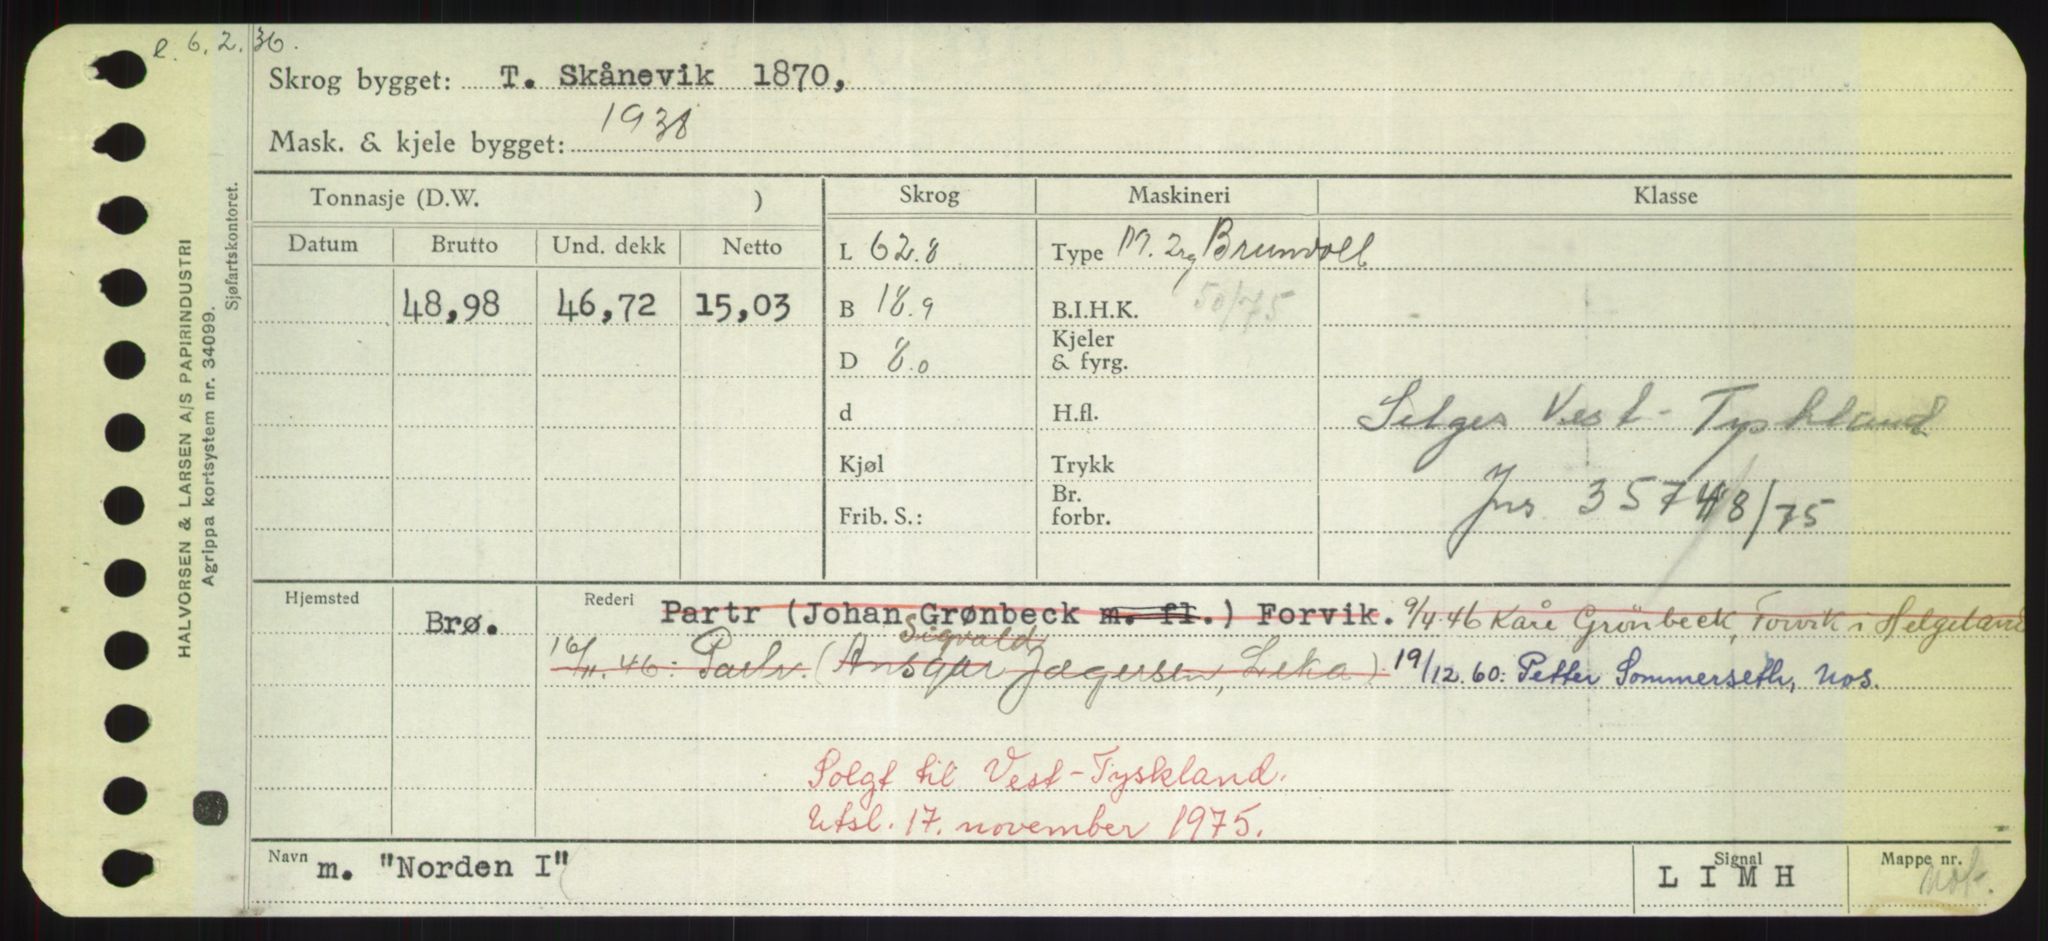 e. 6.2.36.
Skrog bygget: T. Skånevik 1870,
Mask. & kjele bygget: 1938
Tonnasje (D.W. ) Skrog Maskineri Klasse
Datum Brutto Und. dekk Netto L 62.8 Type M. 2rg Brunvoll
48,98 46,72 15,03 B 18.9 B.I.H.K. 50/75
D 8.0 Kjeler & fyrg.
d H.fl. Selges Vest-Tyskland
Kjøl Trykk
Frib. S.: Br. forbr. Jnr. 35748/75
Hjemsted Brø. Rederi Partr (Johan Grønbeck m. fl.) Forvik. 9/4.46 Kåre Grönbeck, Forvik i Helgeland
Sigvald
16/11.46: Partr. (Ansgar Jægersen, Leka) 19/12.60: Petter Sommerseth, Nos.
Solgt til Vest-Tyskland.
Utsl. 17. november 1975.
Navn m. "Norden I" Signal L I M H Mappe nr. Nof.
HALVORSEN & LARSEN A/S PAPIRINDUSTRI
Agrippa kortsystem nr. 34099.
Sjøfartskontoret.